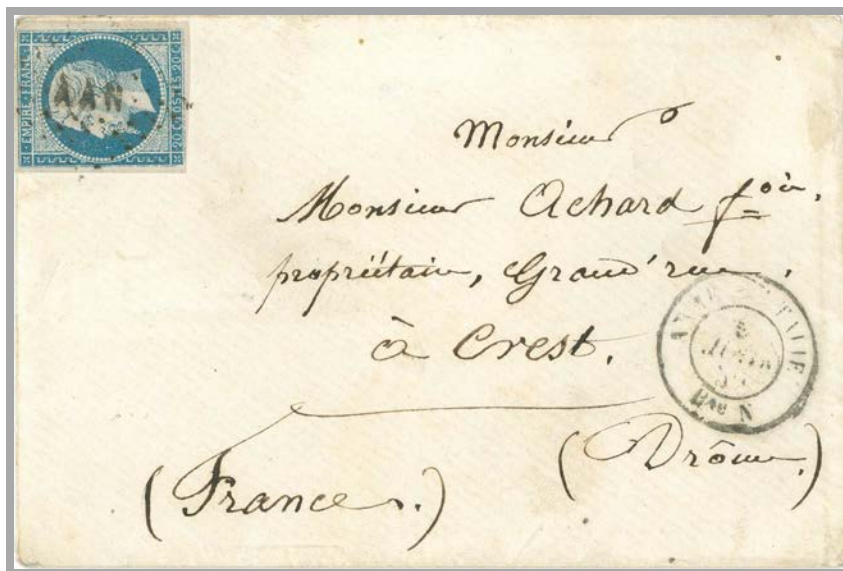 EMPIRE FRANC.
20 C. POSTES 20 C.
AAN
Monsieur
Monsieur Achard fois.
propriétaire, Grand'rue.
à Crest.
(Drôme.)
(France.)
Bau N